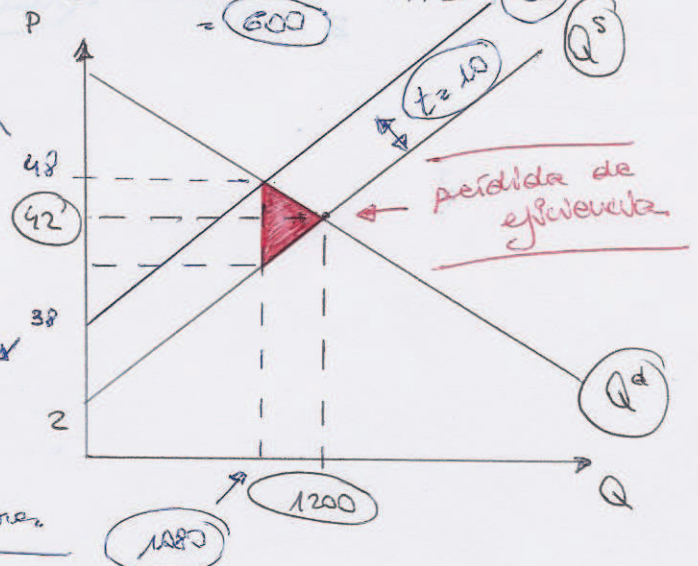 P
= 600
Q^s
t = 10
48
pérdida de
eficiencia
42
38
Q^d
2
1200
Q
1080